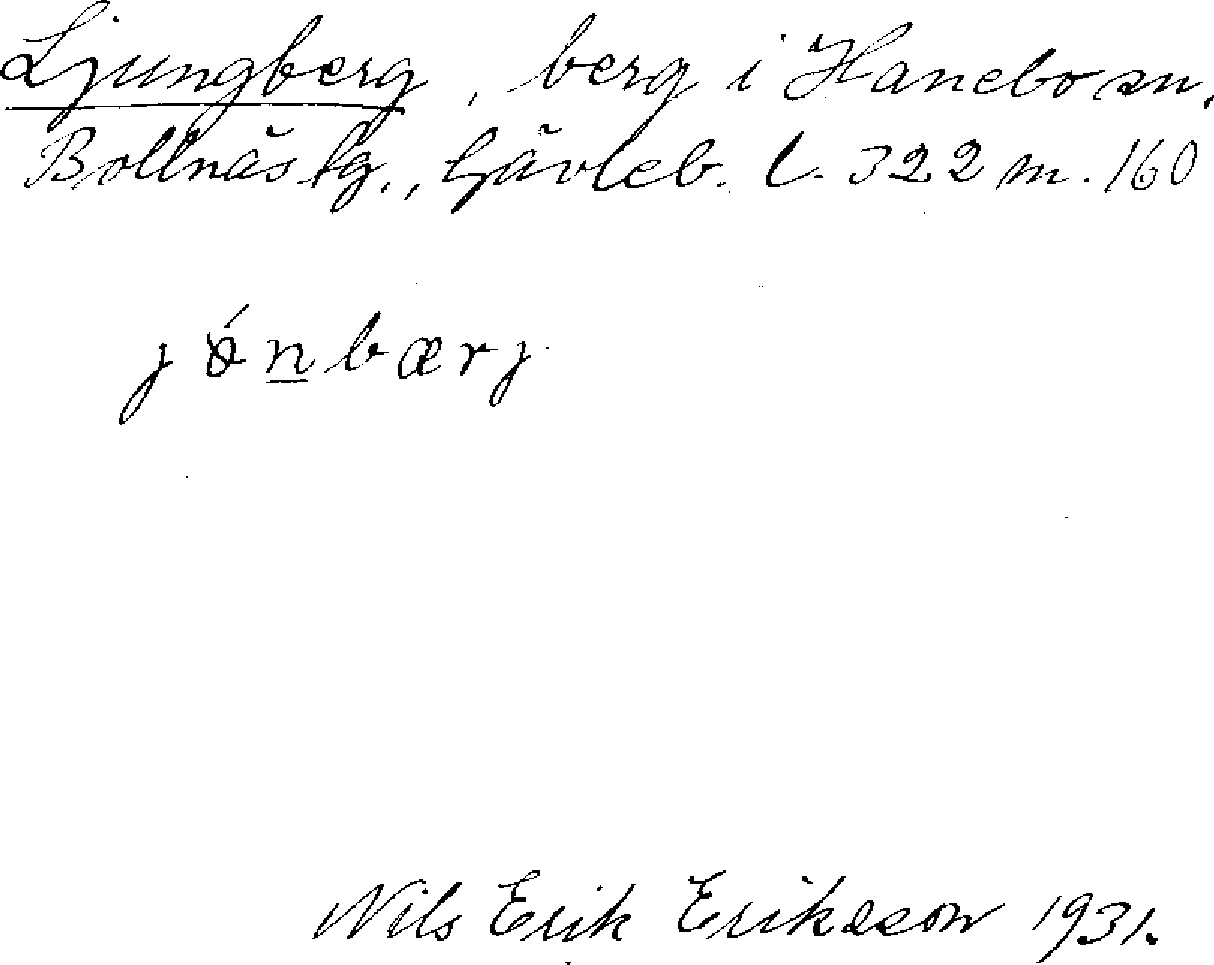 Ljungberg, berg i Hanebo sn.
Bollnäs tg., Gävleb. l. 322 m. 160
bærj
Nils Erik Eriksson 1931.